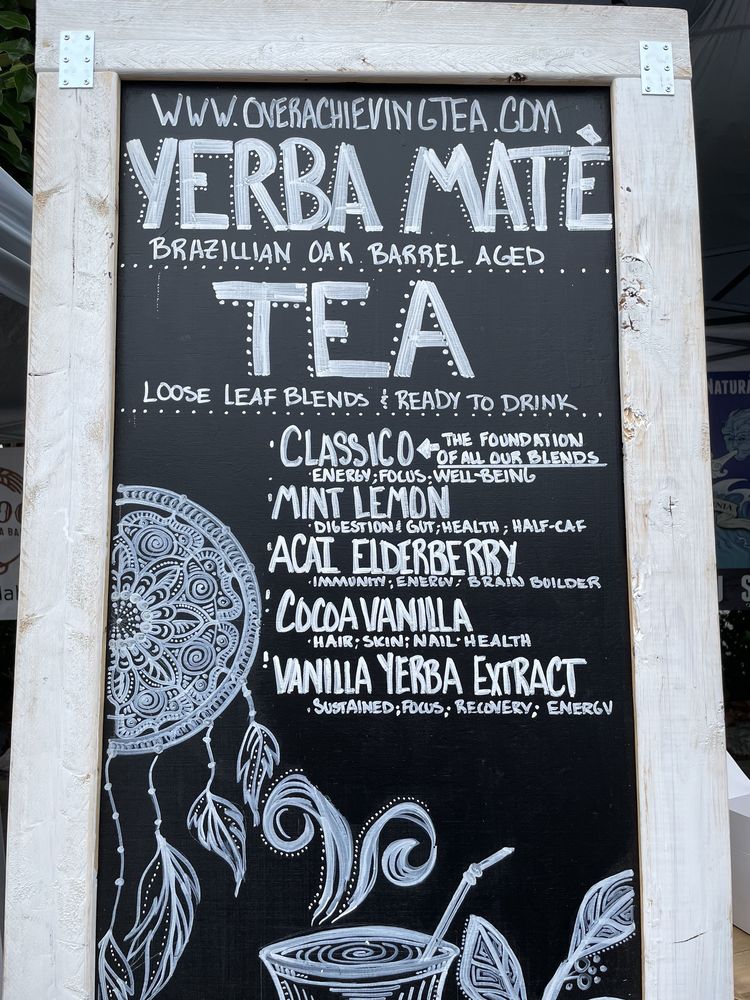 WWW.OVERACHIEVINGTEA.COM
YERBA MATÈ
BRAZILLIAN OAK BARREL AGED
TEA
LOOSE LEAF BLENDS & READY TO DRINK
CLASSICO ← THE FOUNDATION
OF ALL OUR BLENDS
ENERGY; FOCUS; WELL-BEING
MINT LEMON
DIGESTION & GUT; HEALTH; HALF-CAF
ACAI ELDERBERRY
IMMUNITY; ENERGY; BRAIN BUILDER
COCOA VANILLA
HAIR; SKIN; NAIL HEALTH
VANILLA YERBA EXTRACT
SUSTAINED; FOCUS; RECOVERY; ENERGY
NATURA